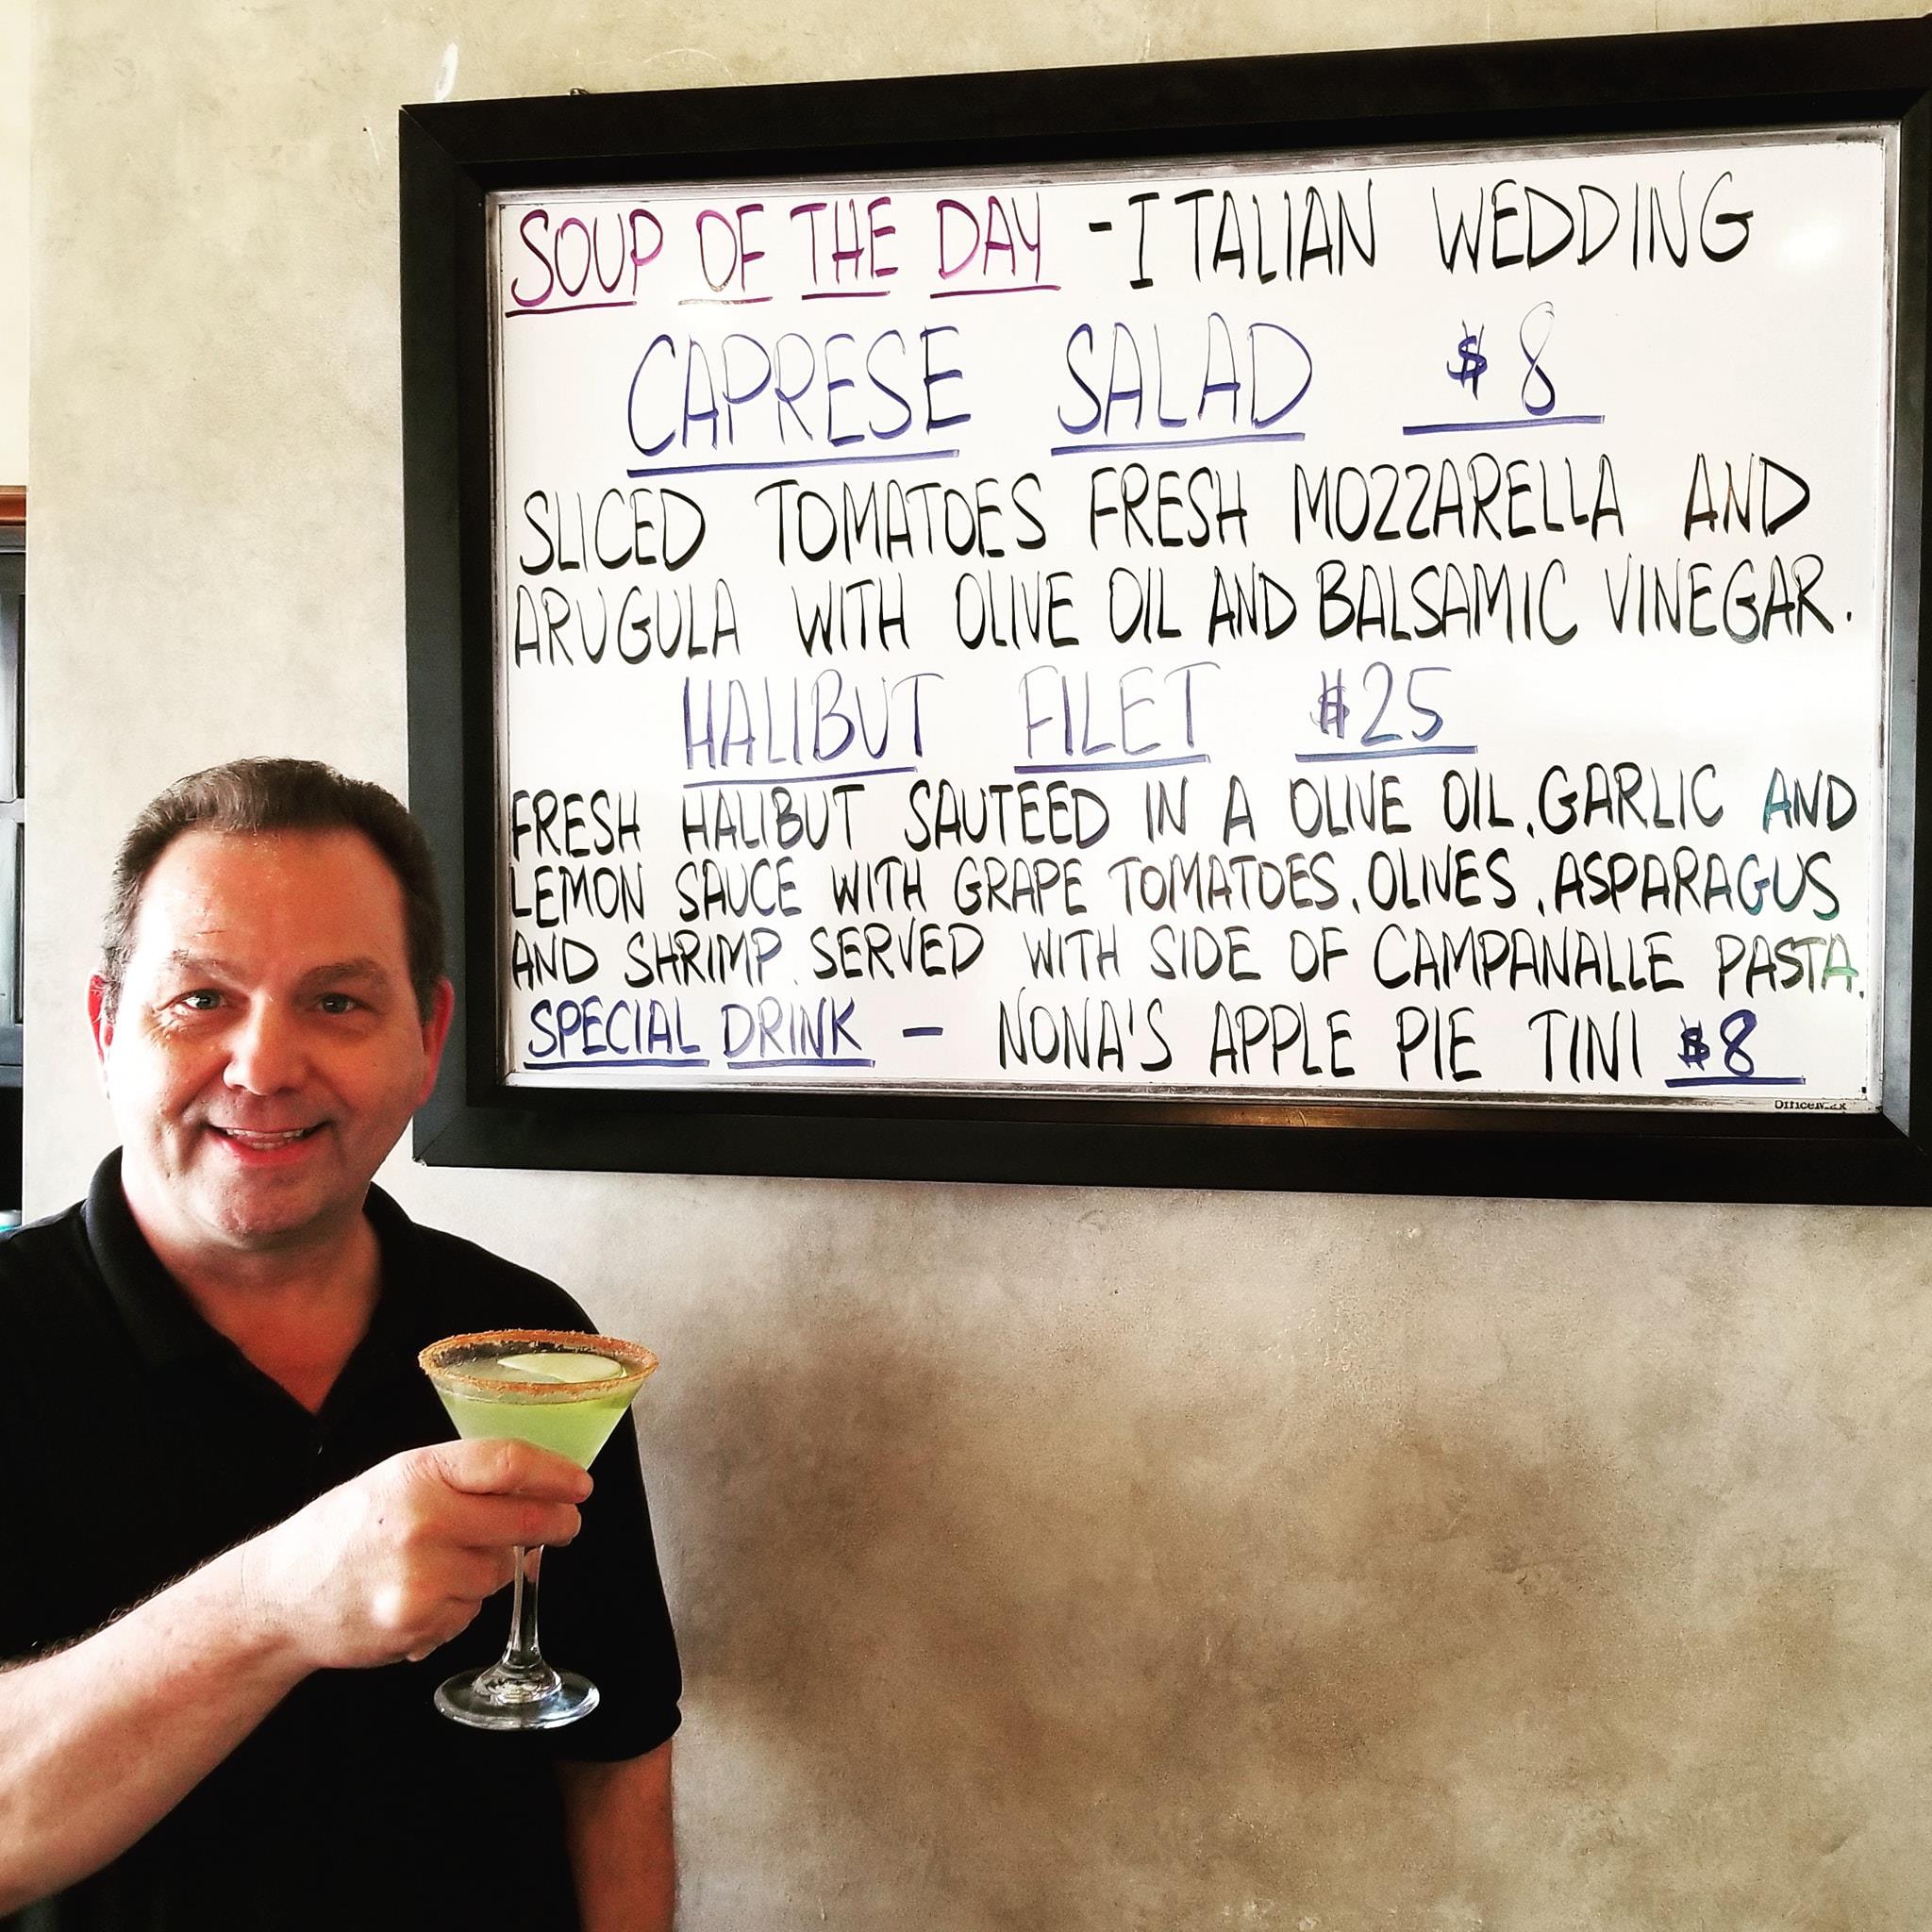 SOUP OF THE DAY - ITALIAN WEDDING
CAPRESE SALAD $8
SLICED TOMATOES FRESH MOZZARELLA AND
ARUGULA WITH OLIVE OIL AND BALSAMIC VINEGAR.
HALIBUT FILET $25
FRESH HALIBUT SAUTEED IN A OLIVE OIL, GARLIC AND
LEMON SAUCE WITH GRAPE TOMATOES, OLIVES, ASPARAGUS
AND SHRIMP. SERVED WITH SIDE OF CAMPANALLE PASTA.
SPECIAL DRINK - NONA'S APPLE PIE TINI $8
OfficeMax